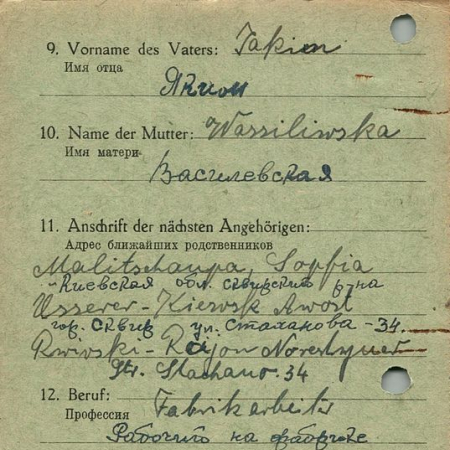 9. Vorname des Vaters: Jakim
Имя отца
Яким
10. Name der Mutter: Wassiliwska
Имя матери
Василевская
11. Anschrift der nächsten Angehörigen:
Адрес ближайших родственников
Sopfia
Киевская обл. сквирский р-на
Kiewsk
гор. Сквир ул. Стаханова - 34.
Str. Stachano. 34
12. Beruf: Fabrikarbeiter
Профессия
Рабочий на фабрике